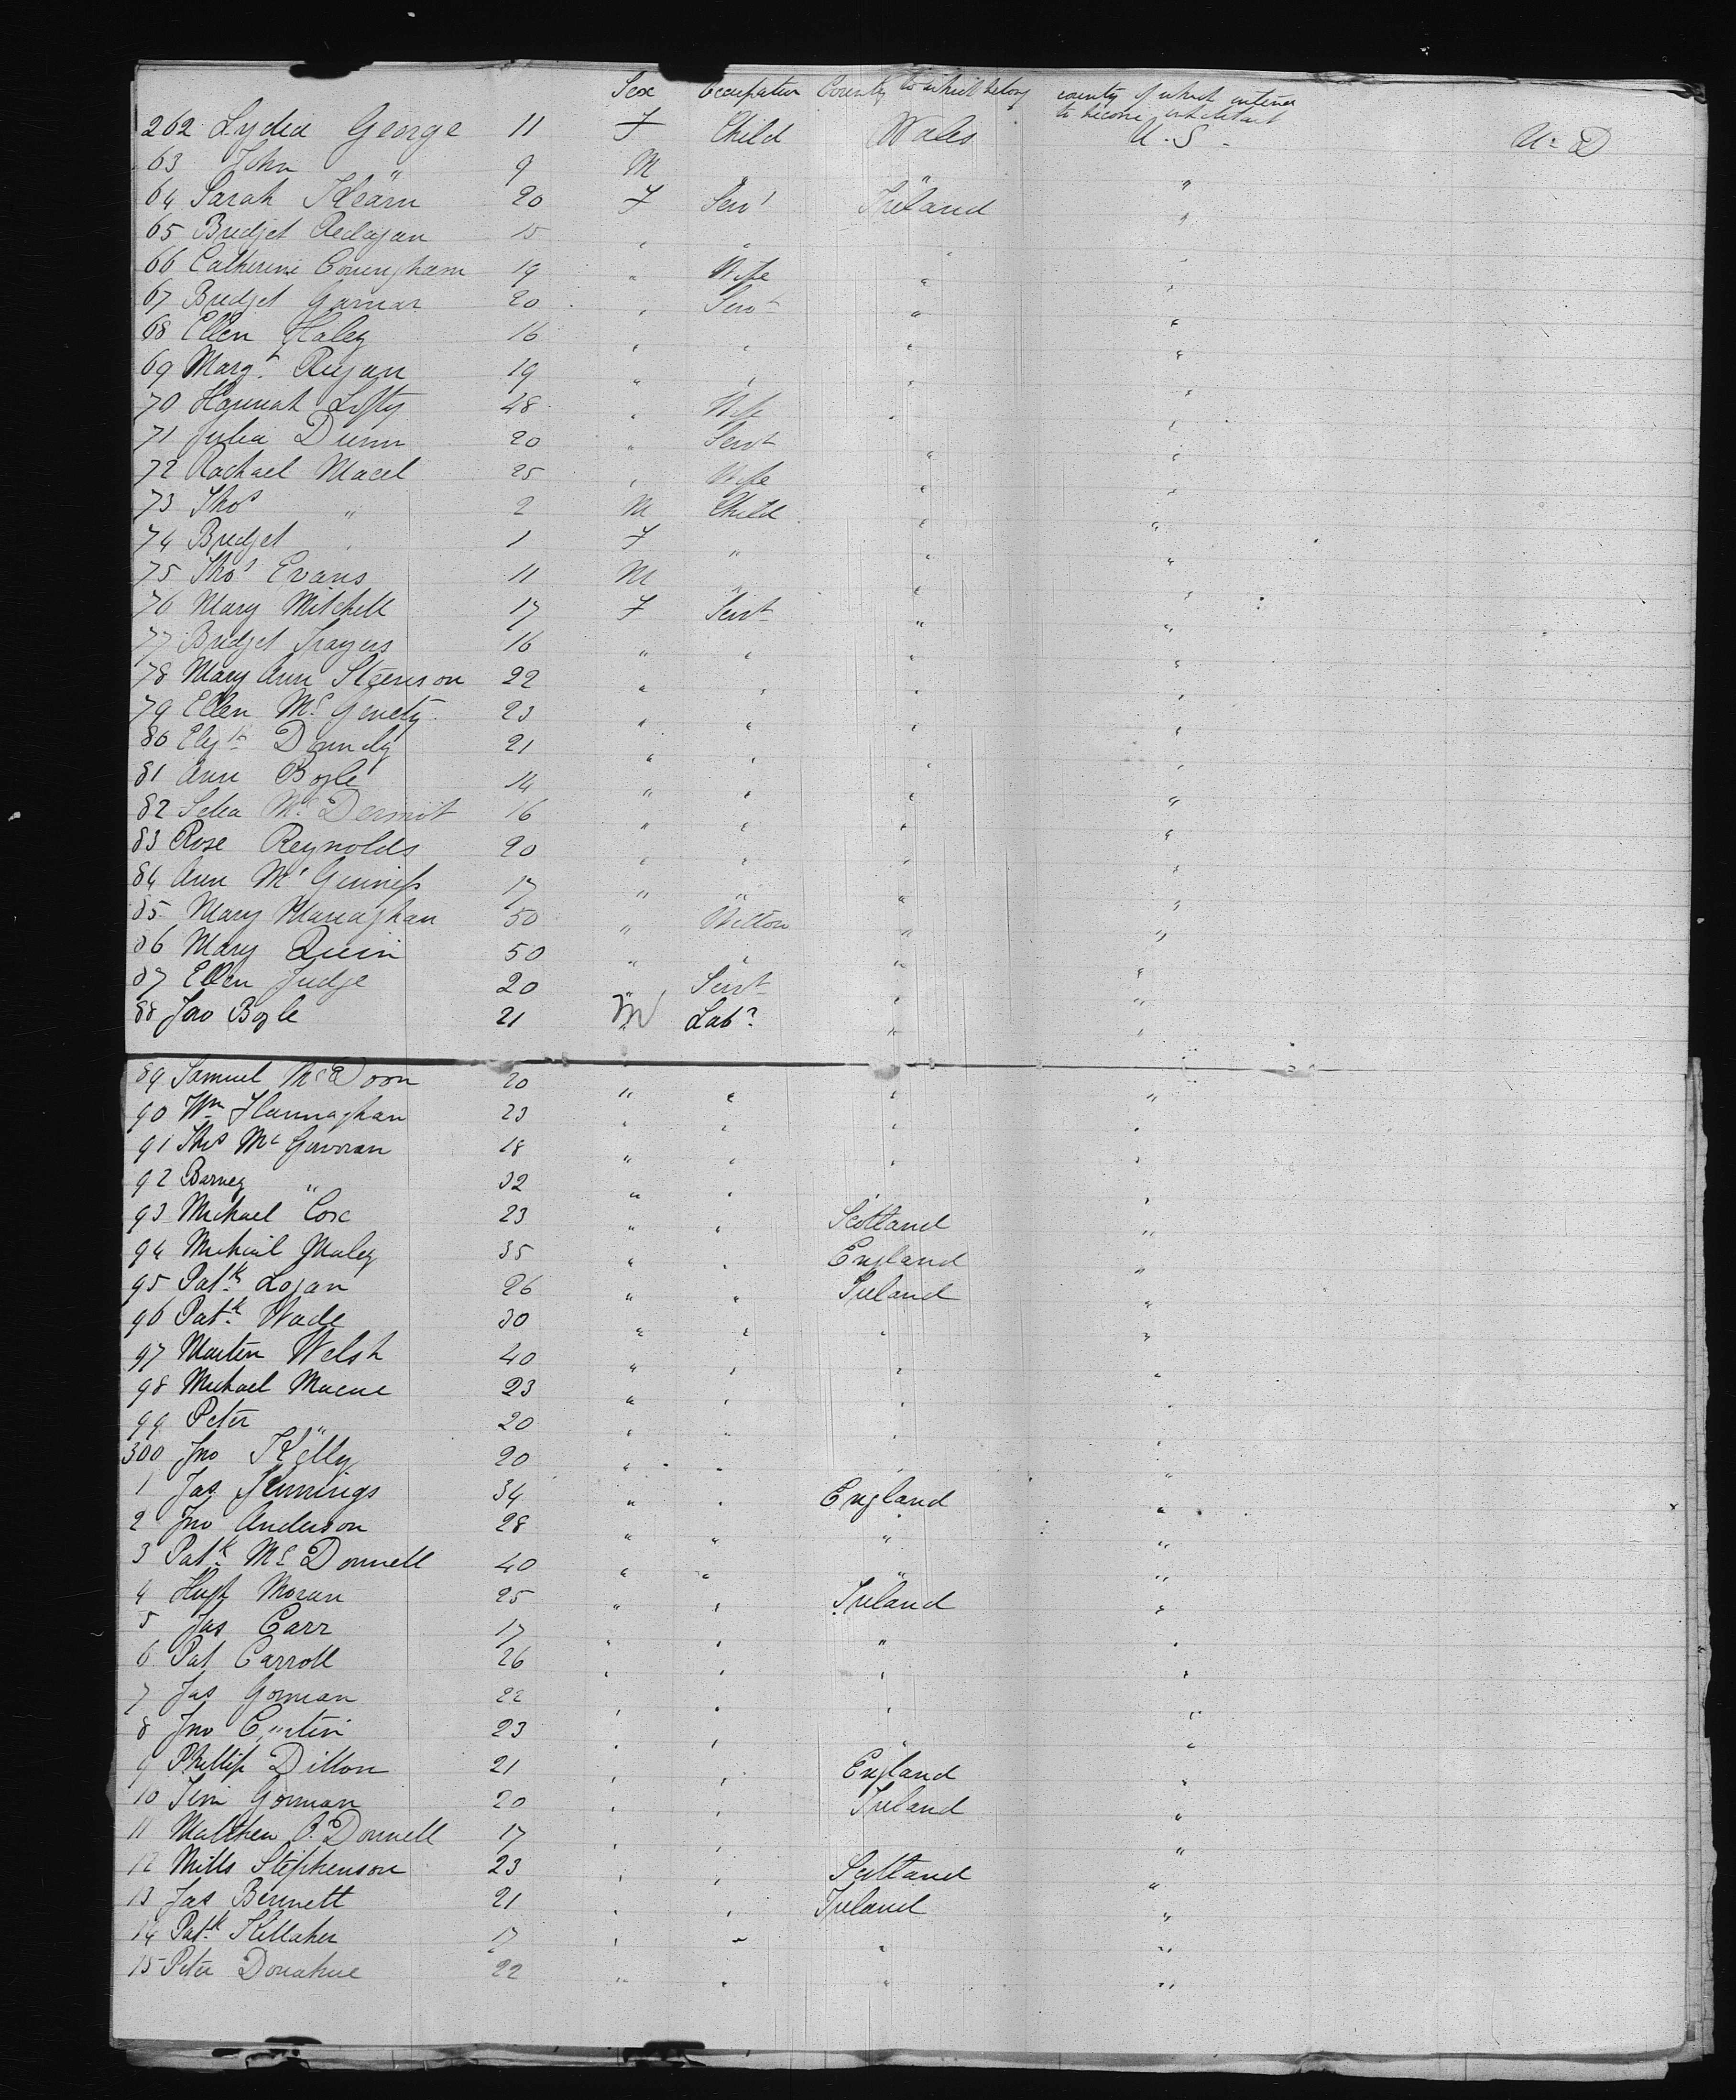 Sex Occupation Country to which belong country of which intend to become inhabitant
262 Lydia George 11 F Child Wales U.S. U-D
63 John " 9 M " " "
64 Sarah Hearn 20 F Servt Ireland "
65 Bridget Redagan 15 " " " "
66 Catherine Coningham 19 " Wife " "
67 Bridget 20 " Servt " "
68 Ellen Haley 16 " " " "
69 Margt Ruyan 19 " " " "
70 Hannah Lofty 48 " Wife " "
71 Julia Dunn 20 " Servt " "
72 Rachael Macel 25 " Wife " "
73 Thos " 2 M Child " "
74 Bridget " 1 F " " "
75 Thos Evans 11 M " " "
76 Mary Mitchell 17 F Servt " "
77 Bridget Trayers 16 " " " "
78 Mary Ann Steenson 22 " " " "
79 Ellen Mc Ginety 23 " " " "
80 Elizth Donnely 21 " " " "
81 Ann Boyle 14 " " " "
82 Mc Dermot 16 " " " "
83 Rose Reynolds 20 " " " "
84 Ann Mc Guiness 17 " " " "
85 Mary Managhan 50 " " "
86 Mary Quin 50 " " " "
87 Ellen Judge 20 " Servt " "
88 Jno Boyle 21 M Labr " "
89 Samuel 20 " " " "
90 Wm Flannaghan 23 " " " "
91 Thos Mc Govoran 18 " " " "
92 Barney " 32 " " " "
93 Michael Cox 23 " " Scotland "
94 Michail Maley 35 " " England "
95 Patk Logan 26 " " Ireland "
96 Patk Wade 30 " " " "
97 Martin Welsh 40 " " " "
98 Michael Macue 23 " " " "
99 Peter " 20 " " " "
300 Jno Kelly 20 " " " "
1 Jas Jennings 34 " " England "
2 Jno Anderson 28 " " " "
3 Patk Mc Donnell 40 " " " "
4 Hugh Moran 25 " " Ireland "
5 Jas Carr 17 " " " "
6 Pat Carroll 26 " " " "
7 Jas Gorman 22 " " " "
8 Jno Curtin 23 " " " "
9 Phillip Dillon 21 " " England "
10 Tim Gorman 20 " " Ireland "
11 Matthew O'Donnell 17 " " "
12 Mills Stephenson 23 " " Scotland "
13 Jas Bennett 21 " " Ireland "
14 Patk Killaher 17 " " " "
15 Peter Donahue 22 " " " "